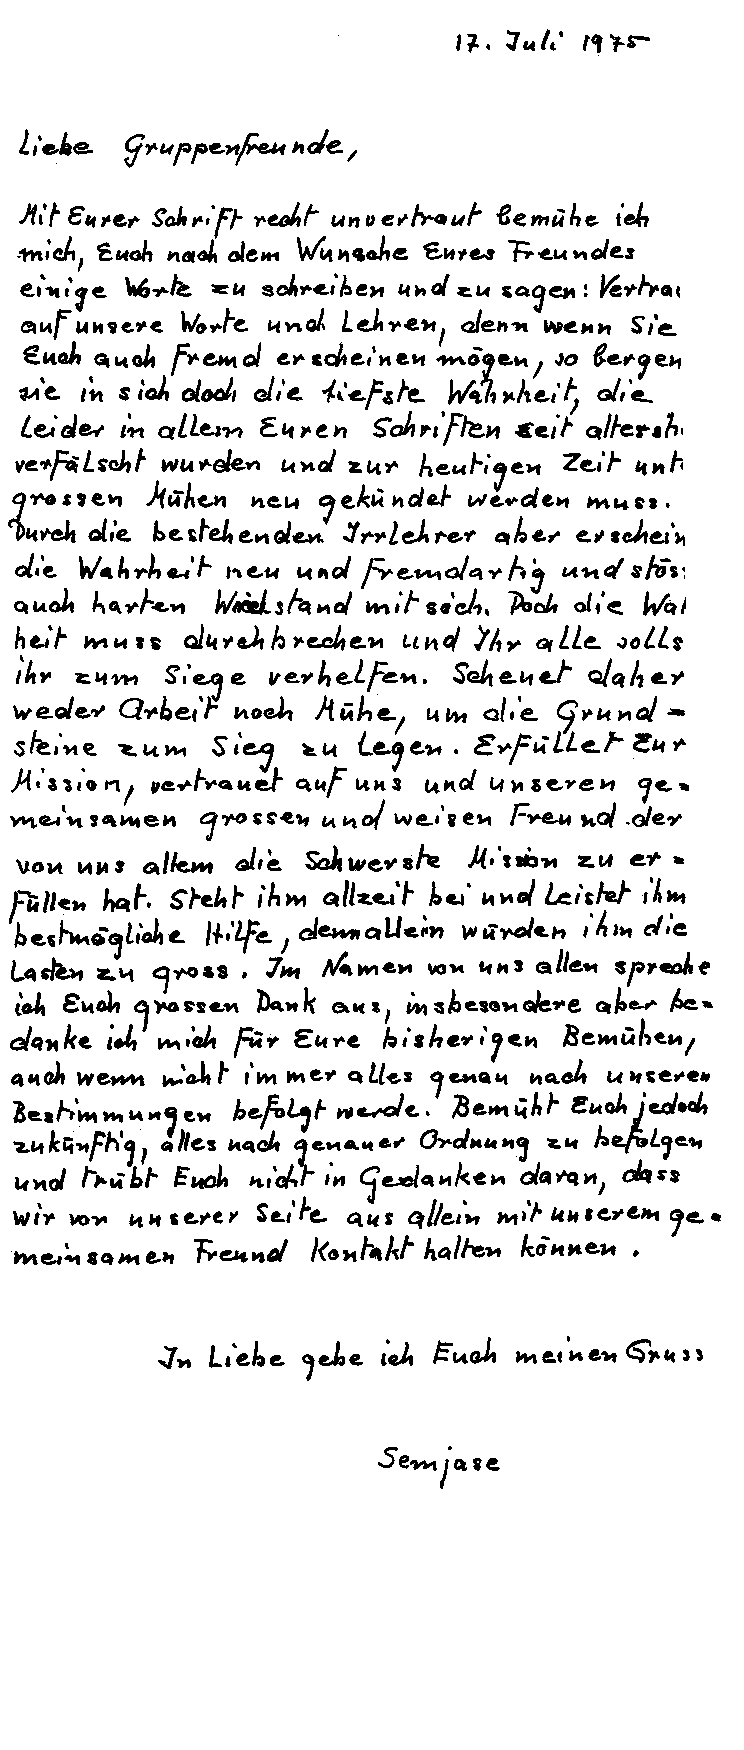 17. Juli 1975
Liebe Gruppenfreunde,
Mit Eurer Schrift recht unvertraut bemühe ich
mich, Euch nach dem Wunsche Eures Freundes
einige Worte zu schreiben und zu sagen: Vertrau
auf unsere Worte und Lehren, denn wenn Sie
Euch auch fremd erscheinen mögen, so bergen
sie in sich doch die tiefste Wahrheit, die
leider in allem Euren Schriften seit altersh
verfälscht wurden und zur heutigen Zeit unt
grossen Mühen neu gekündet werden muss.
Durch die bestehenden Irrlehrer aber erschein
die Wahrheit neu und fremdartig und stös
auch harten Widerstand mit sich. Doch die Wah
heit muss durchbrechen und Ihr alle solls
ihr zum Siege verhelfen. Scheuet daher
weder Arbeit noch Mühe, um die Grund=
steine zum Sieg zu legen. Erfüllet Eur
Mission, vertrauet auf uns und unseren ge=
meinsamen grossen und weisen Freund der
von uns allem die Schwerste Mission zu er=
füllen hat. Steht ihm allzeit bei und leistet ihm
bestmögliche Hilfe, denn allein würden ihm die
Lasten zu gross. Im Namen von uns allen spreche
ich Euch grossen Dank aus, insbesondere aber be=
danke ich mich für Eure bisherigen Bemühen,
auch wenn nicht immer alles genau nach unseren
Bestimmungen befolgt werde. Bemüht Euch jedoch
zukünftig, alles nach genauer Ordnung zu befolgen
und trübt Euch nicht in Gedanken daran, dass
wir von unserer Seite aus allein mit unserem ge=
meinsamen Freund Kontakt halten können.
In Liebe gebe ich Euch meinen Gruss
Semjase